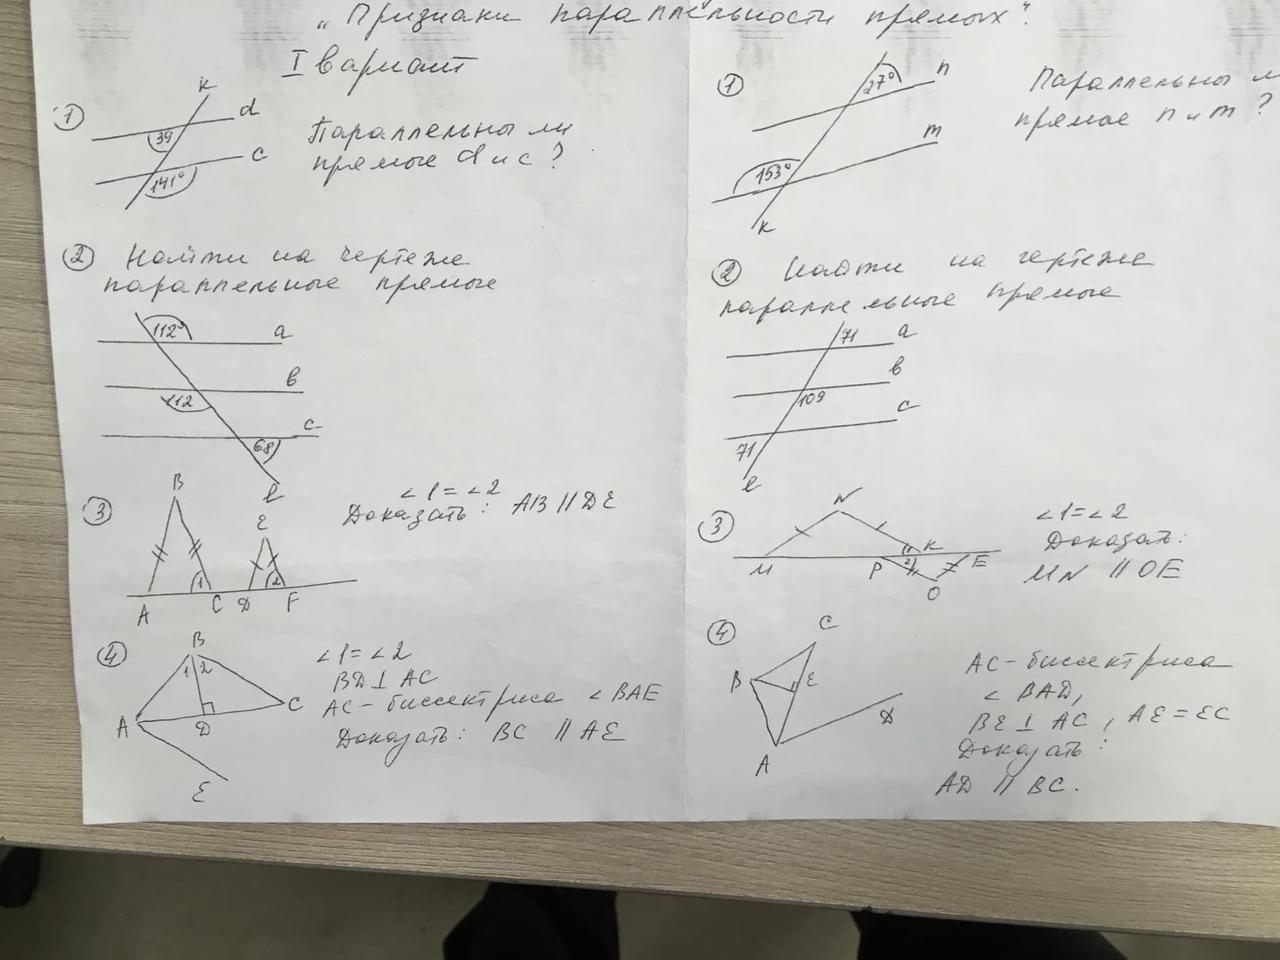 „Признаки параллельности прямых".
I вариант
① Параллельны ли
прямые d и c ?
к
d
39
c
141°
② Найти на чертеже
параллельные прямые
112°
a
112
в
c
68
ℓ
③ ∠1 = ∠2
Доказать: AB || DE
B
E
1
2
A
C
D
F
④ ∠1 = ∠2
BD ⊥ AC
AC - биссектриса ∠ BAE
Доказать: BC || AE
B
1 2
A
D
C
E
① Параллельны
прямое n и m ?
27°
n
m
153°
к
② Найти на чертеже
параллельные прямые
71
a
в
109
c
71
ℓ
③ ∠1=∠2
Доказать:
MN || OE
N
1
K
M
P
2
E
O
④ AC - биссектриса
∠ BAD,
BE ⊥ AC , AE = EC
Доказать:
AD || BC.
C
B
E
D
A